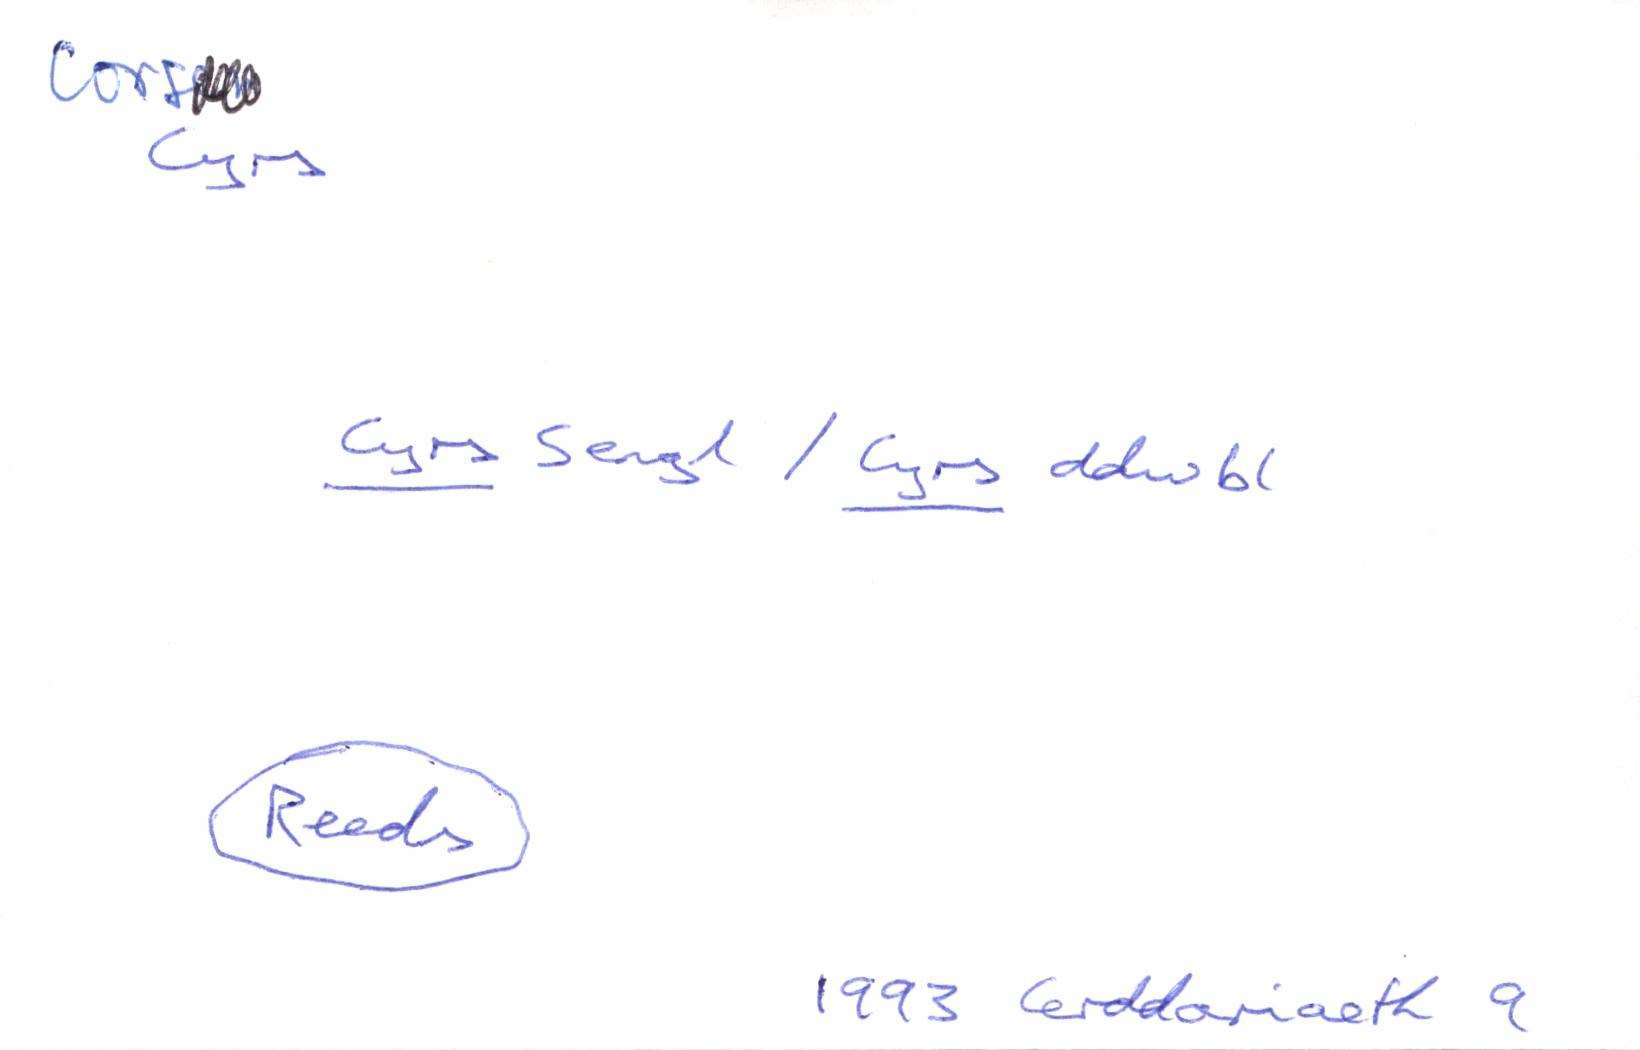 Cors
Cyrs
Cyrs sengl / Cyrs ddwbl
Reeds
1993 Cerddoriaeth 9